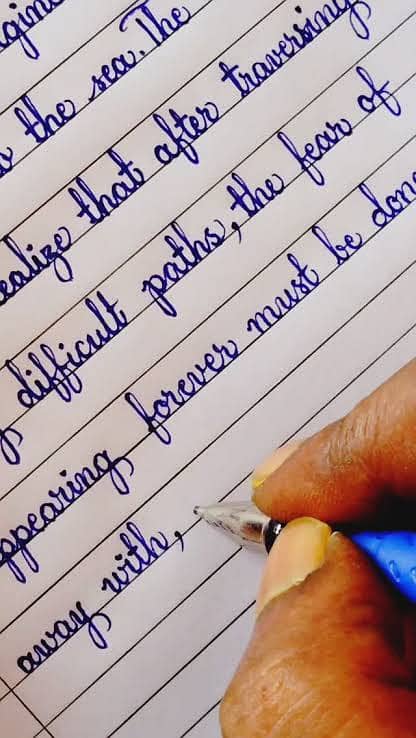 the sea. The
ealize that after traversing
difficult paths, the fear of
appearing forever must be done
away with,